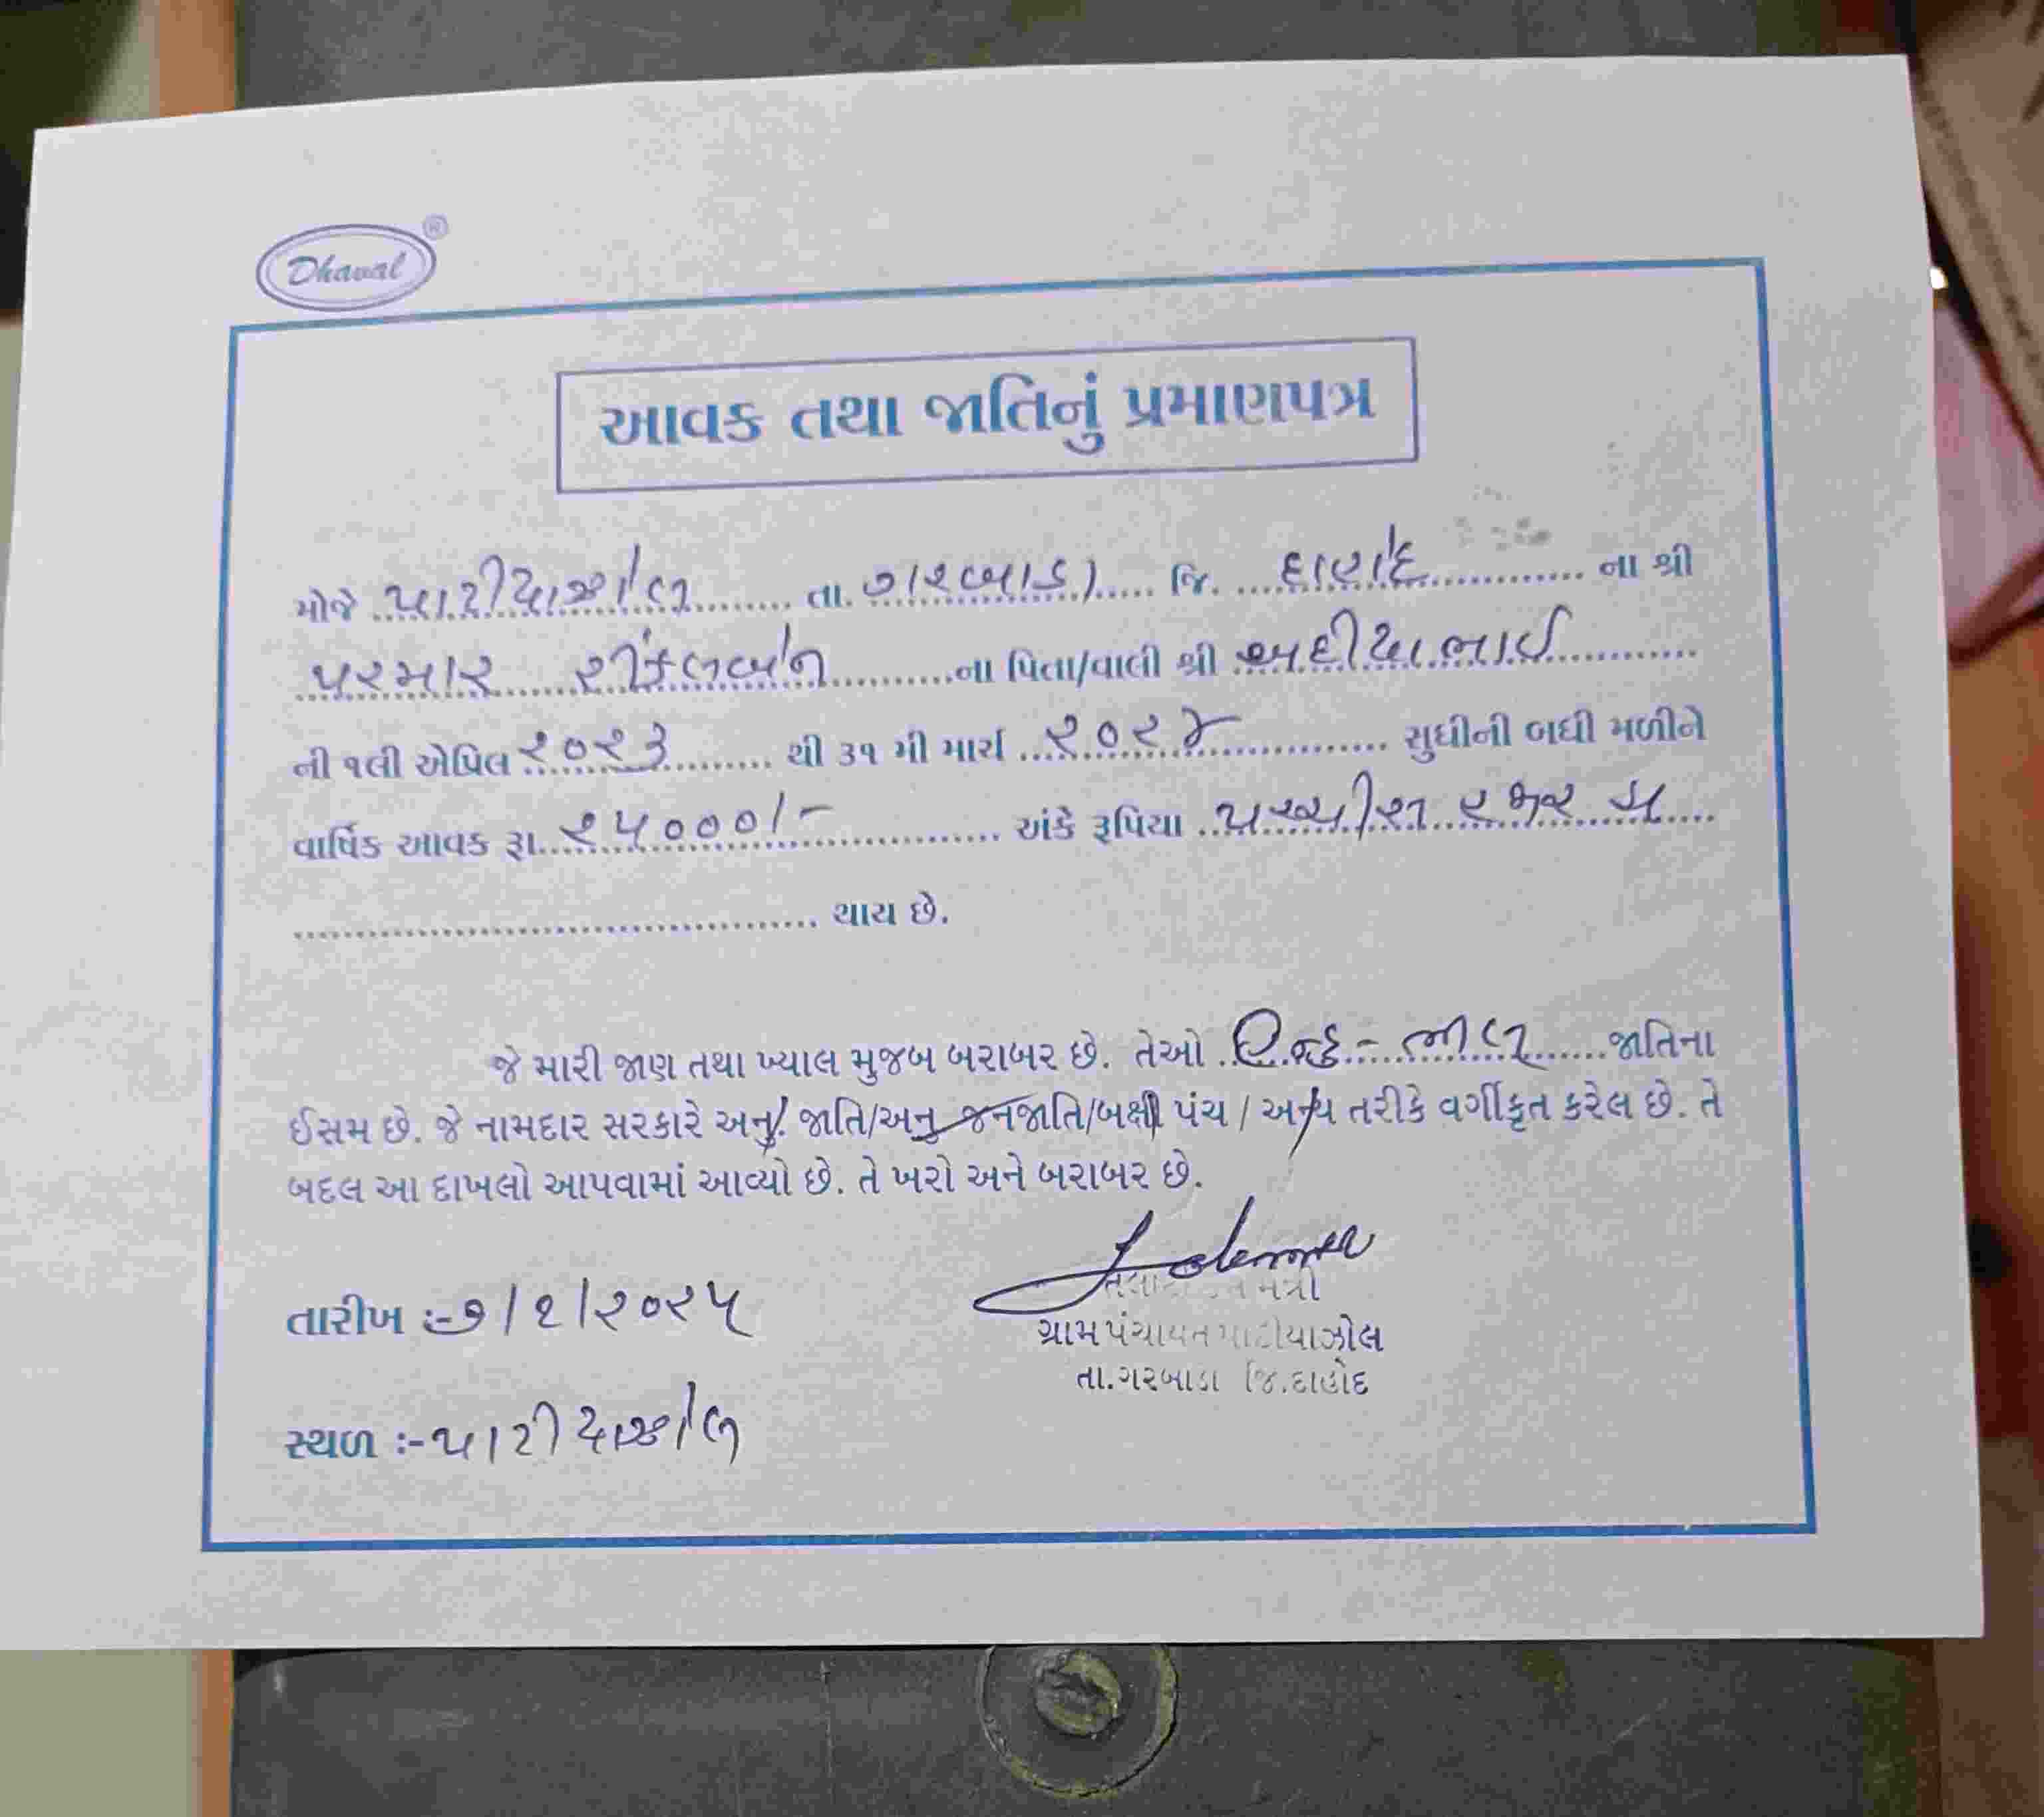 Dhaval ®
આવક તથા જાતિનું પ્રમાણપત્ર
મોજે પાટીયાઝોલ તા. ગરબાડા જિ. દાહોદ ના શ્રી
પરમાર રીંકલબેન ના પિતા/વાલી શ્રી અદીયાભાઈ
ની ૧લી એપ્રિલ ૨૦૨૩ થી ૩૧ મી માર્ચ ૨૦૨૪ સુધીની બધી મળીને
વાર્ષિક આવક રૂા. ૨૫૦૦૦/- અંકે રૂપિયા પચ્ચીસ હજાર
થાય છે.
જે મારી જાણ તથા ખ્યાલ મુજબ બરાબર છે. તેઓ હિન્દુ - ભીલ જાતિના
ઈસમ છે. જે નામદાર સરકારે અનુ. જાતિ/અનુ જનજાતિ/બક્ષી પંચ / અન્ય તરીકે વર્ગીકૃત કરેલ છે. તે
બદલ આ દાખલો આપવામાં આવ્યો છે. તે ખરો અને બરાબર છે.
તારીખ :- ૭/૨/૨૦૨૫
મંત્રી
ગ્રામ પંચાયત પાટીયાઝોલ
તા.ગરબાડા જિ.દાહોદ
સ્થળ :- પાટીયાઝોલ